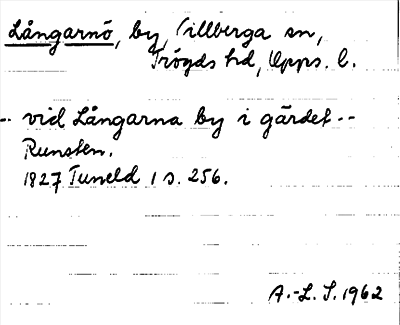 Långarnö, by, Lillberga sn,
Trögds hd, Upps. l.
-- vid Långarna by i gärdet --
Runsten.
1827 Tuneld 1 s. 256.
A.-L. S. 1962